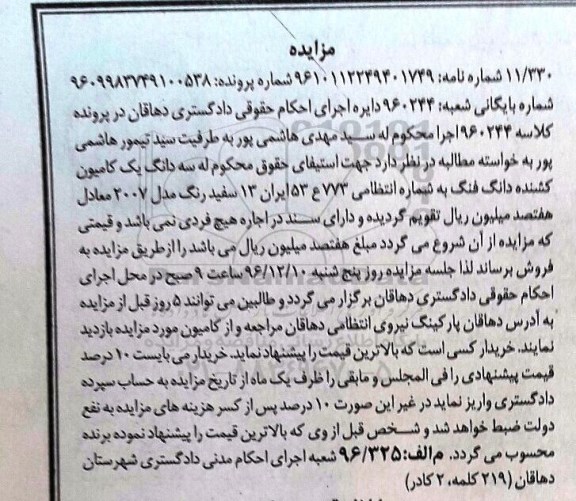 مزایده
۱۱/۳۳۰ شماره نامه: ۹۶۱۰۱۱۲۲۴۹۴۰۱۷۴۹ شماره پرونده: ۹۶۰۹۹۸۳۷۴۹۱۰۰۵۳۸
شماره بایگانی شعبه: ۹۶۰۲۴۴ دایره اجرای احکام حقوقی دادگستری دهاقان در پرونده
کلاسه ۹۶۰۲۴۴ اجرا محکوم له سید مهدی هاشمی پور به طرفیت سید تیمور هاشمی
پور به خواسته مطالبه در نظر دارد جهت استیفای حقوق محکوم له سه دانگ یک کامیون
کشنده دانگ فنگ به شماره انتظامی ۷۷۳ ع ۵۳ ایران ۱۳ سفید رنگ مدل ۲۰۰۷ معادل
هفتصد میلیون ریال تقویم گردیده و دارای سند در اجاره هیچ فردی نمی باشد و قیمتی
که مزایده از آن شروع می گردد مبلغ هفتصد میلیون ریال می باشد را از طریق مزایده به
فروش برساند لذا جلسه مزایده روز پنج شنبه ۹۶/۱۲/۱۰ ساعت ۹ صبح در محل اجرای
احکام حقوقی دادگستری دهاقان برگزار می گردد و طالبین می توانند ۵ روز قبل از مزایده
به آدرس دهاقان پارکینگ نیروی انتظامی دهاقان مراجعه و از کامیون مورد مزایده بازدید
نمایند. خریدار کسی است که بالاترین قیمت را پیشنهاد نماید. خریدار می بایست ۱۰ درصد
قیمت پیشنهادی را فی المجلس و مابقی را ظرف یک ماه از تاریخ مزایده به حساب سپرده
دادگستری واریز نماید در غیر این صورت ۱۰ درصد پس از کسر هزینه های مزایده به نفع
دولت ضبط خواهد شد و شخص قبل از وی که بالاترین قیمت را پیشنهاد نموده برنده
محسوب می گردد. م الف: ۹۶/۳۲۵ شعبه اجرای احکام مدنی دادگستری شهرستان
دهاقان (۲۱۹ کلمه، ۲ کادر)